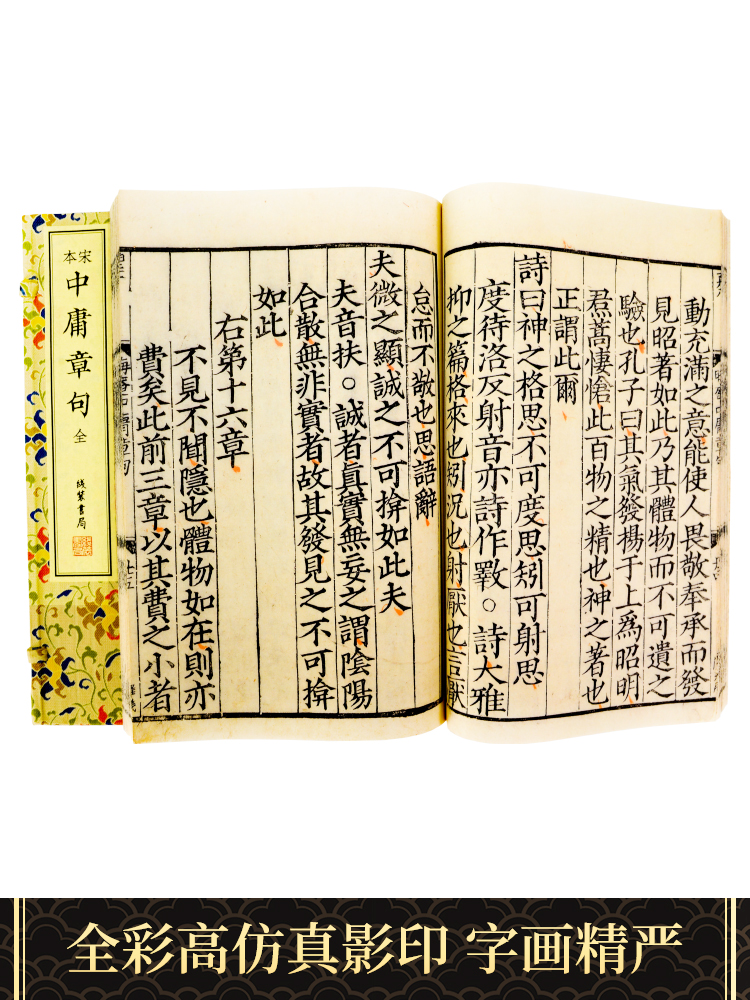 宋本
中庸章句
全
线装书局
動充滿之意能使人畏敬奉承而發
見昭著如此乃其體物而不可遺之
驗也孔子曰其氣發揚于上爲昭明
焄蒿悽愴此百物之精也神之著也
正謂此爾
詩曰神之格思不可度思矧可射思
度待洛反射音亦詩作斁○詩大雅
抑之篇格來也矧況也射厭也言厭
怠而不敬也思語辭
夫微之顯誠之不可揜如此夫
夫音扶○誠者眞實無妄之謂陰陽
合散無非實者故其發見之不可揜
如此
右第十六章
不見不聞隱也體物如在則亦
費矣此前三章以其費之小者
七五
全彩高仿真影印 字画精严